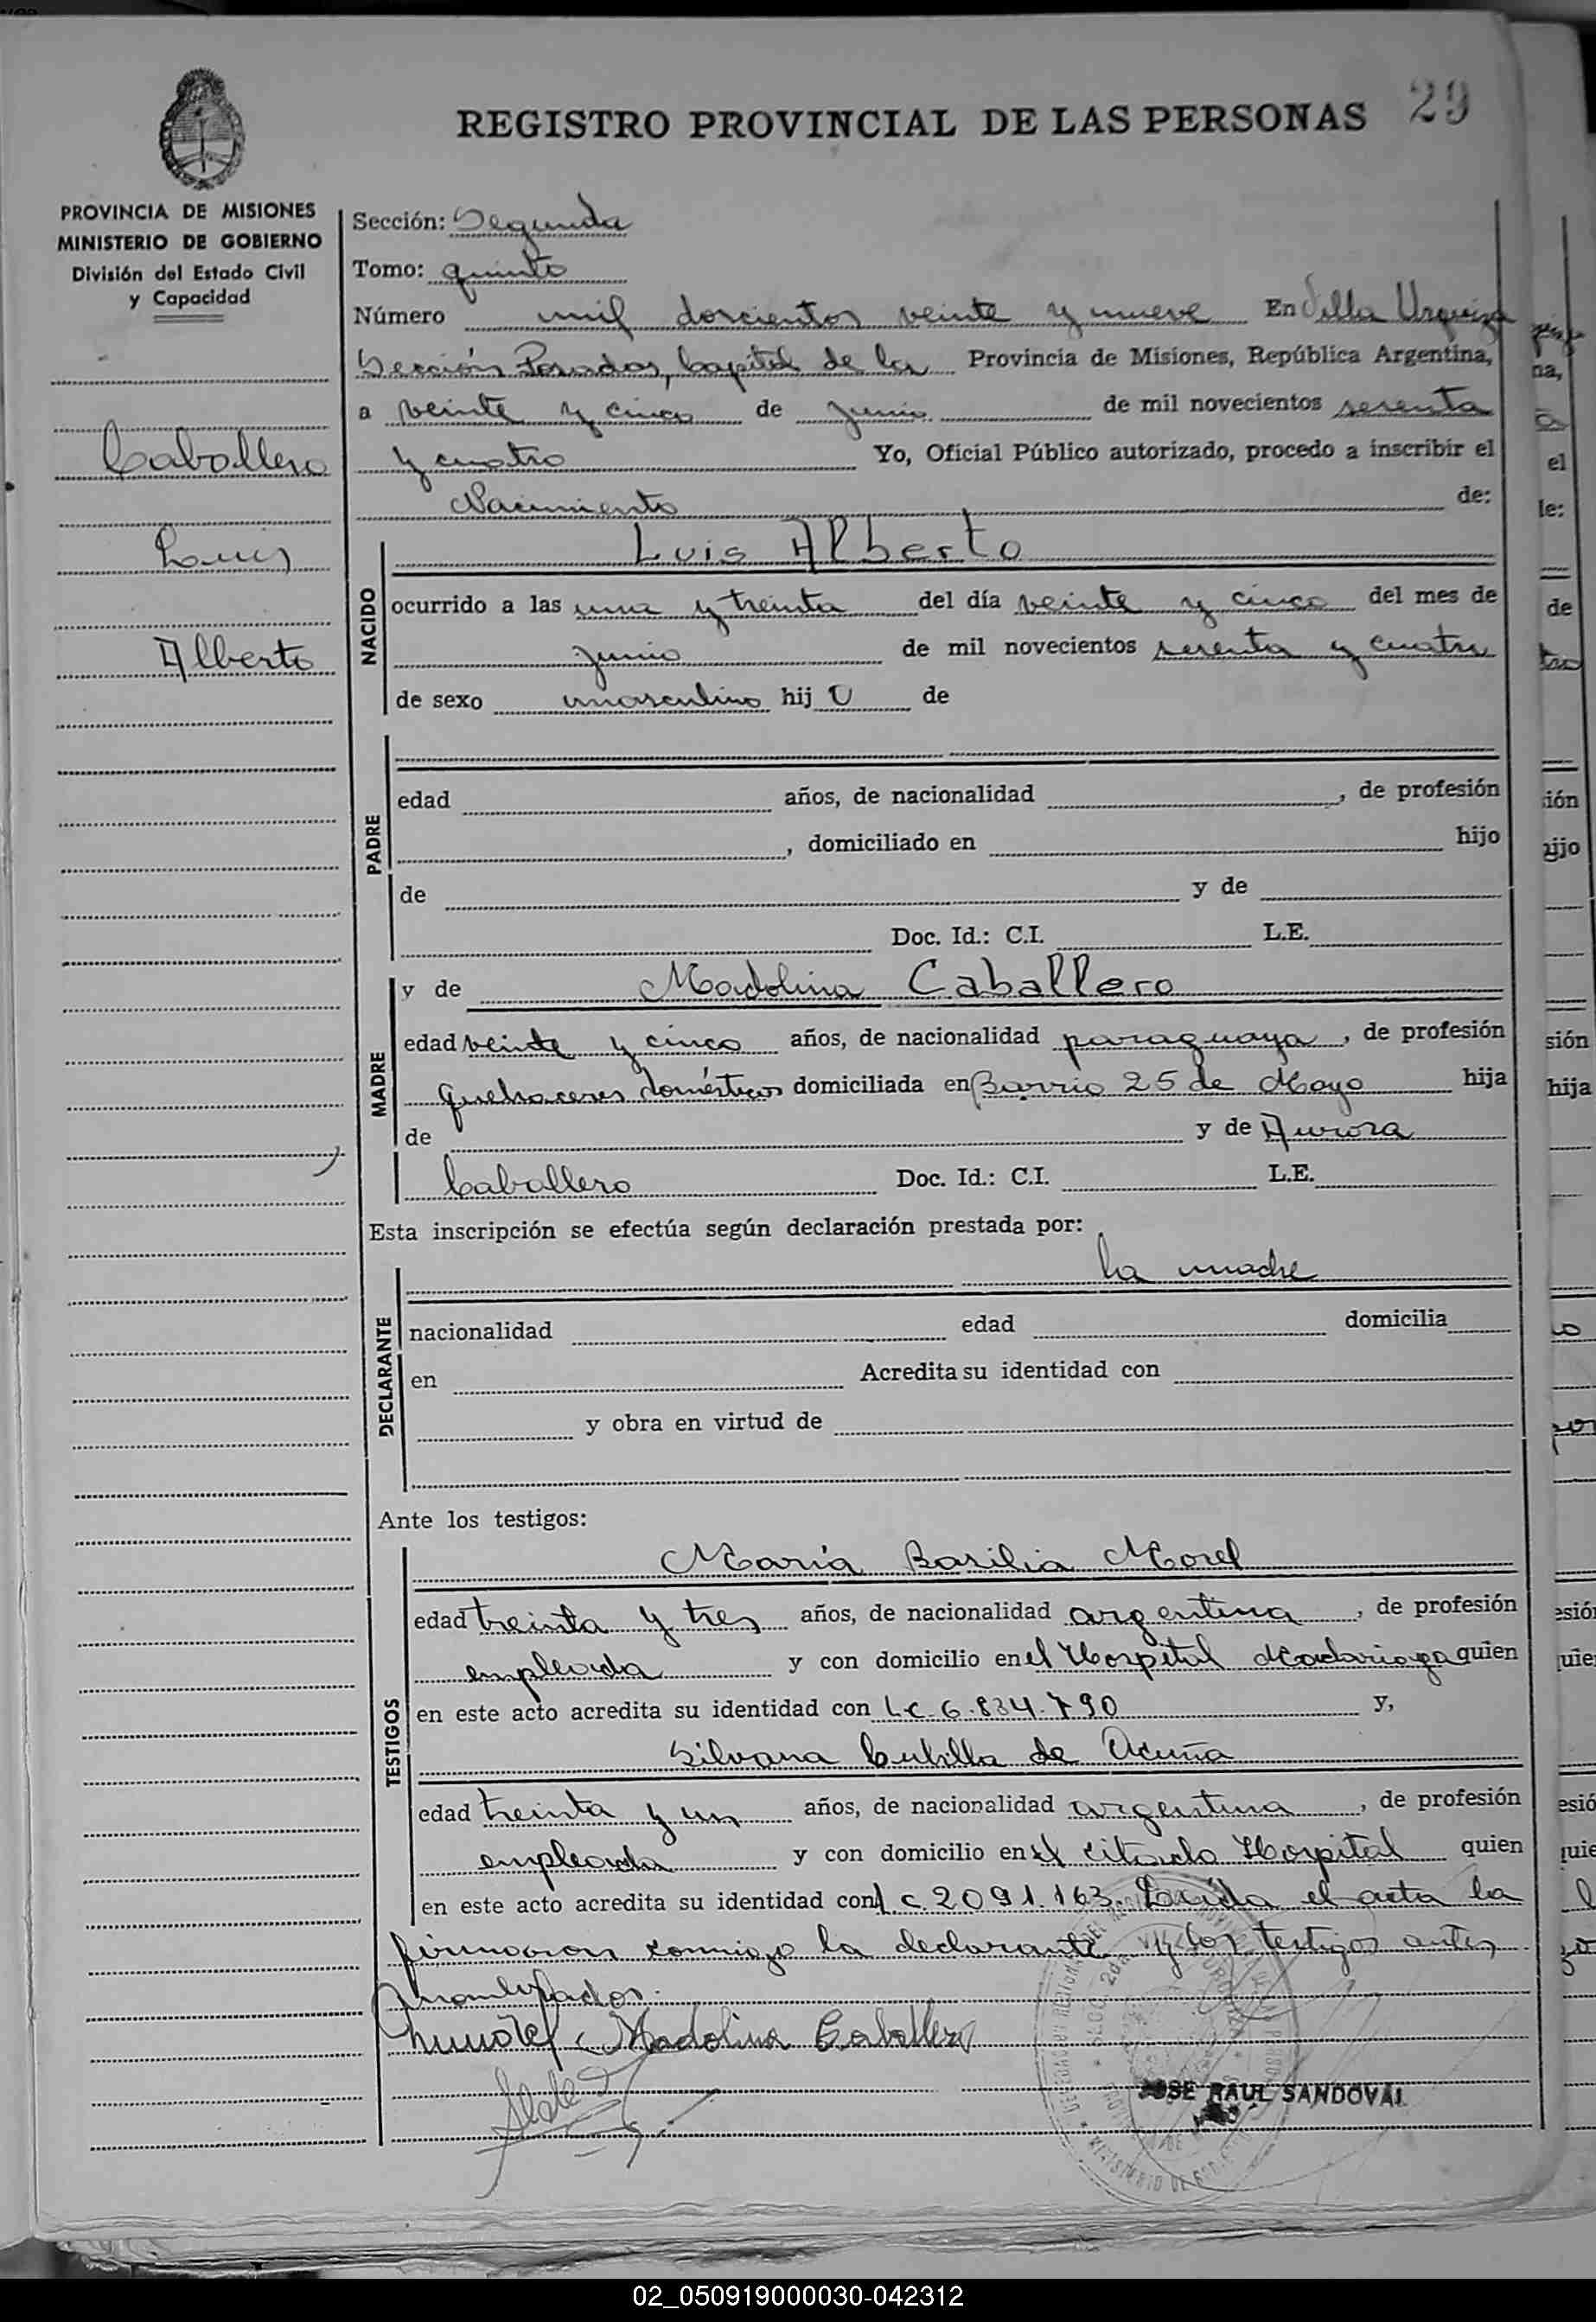 REGISTRO PROVINCIAL DE LAS PERSONAS 29
PROVINCIA DE MISIONES
MINISTERIO DE GOBIERNO
División del Estado Civil
y Capacidad
Caballero
Luis
Alberto
Sección: Segunda
Tomo: quinto
Número mil doscientos veinte y nueve En Villa Urquiza
Sección Posadas, Capital de la Provincia de Misiones, República Argentina,
a veinte y cinco de junio de mil novecientos setenta
y cuatro Yo, Oficial Público autorizado, procedo a inscribir el
Nacimiento de:
NACIDO
Luis Alberto
ocurrido a las una y treinta del día veinte y cinco del mes de
junio de mil novecientos setenta y cuatro
de sexo masculino hijo de
PADRE
edad años, de nacionalidad , de profesión
, domiciliado en hijo
de y de
Doc. Id.: C.I. L.E.
MADRE
y de Madolina Caballero
edad veinte y cinco años, de nacionalidad paraguaya, de profesión
quehaceres domésticos domiciliada en Barrio 25 de Mayo hija
de y de Aurora
Caballero Doc. Id.: C.I. L.E.
Esta inscripción se efectúa según declaración prestada por:
DECLARANTE
la madre
nacionalidad edad domicilia
en Acredita su identidad con
y obra en virtud de
Ante los testigos:
TESTIGOS
María Basilia Morel
edad treinta y tres años, de nacionalidad argentina, de profesión
empleada y con domicilio en el Hospital Madariaga quien
en este acto acredita su identidad con L.C. 6.834.790 y,
Silvana Cubilla de Acuña
edad treinta y un años, de nacionalidad argentina, de profesión
empleada y con domicilio en el citado Hospital quien
en este acto acredita su identidad con L C. 2091.163. Leída el acta la
firmaron conmigo la declarante y los testigos antes
nombrados.
Madolina Caballero
JOSE RAUL SANDOVAL
02_050919000030-042312